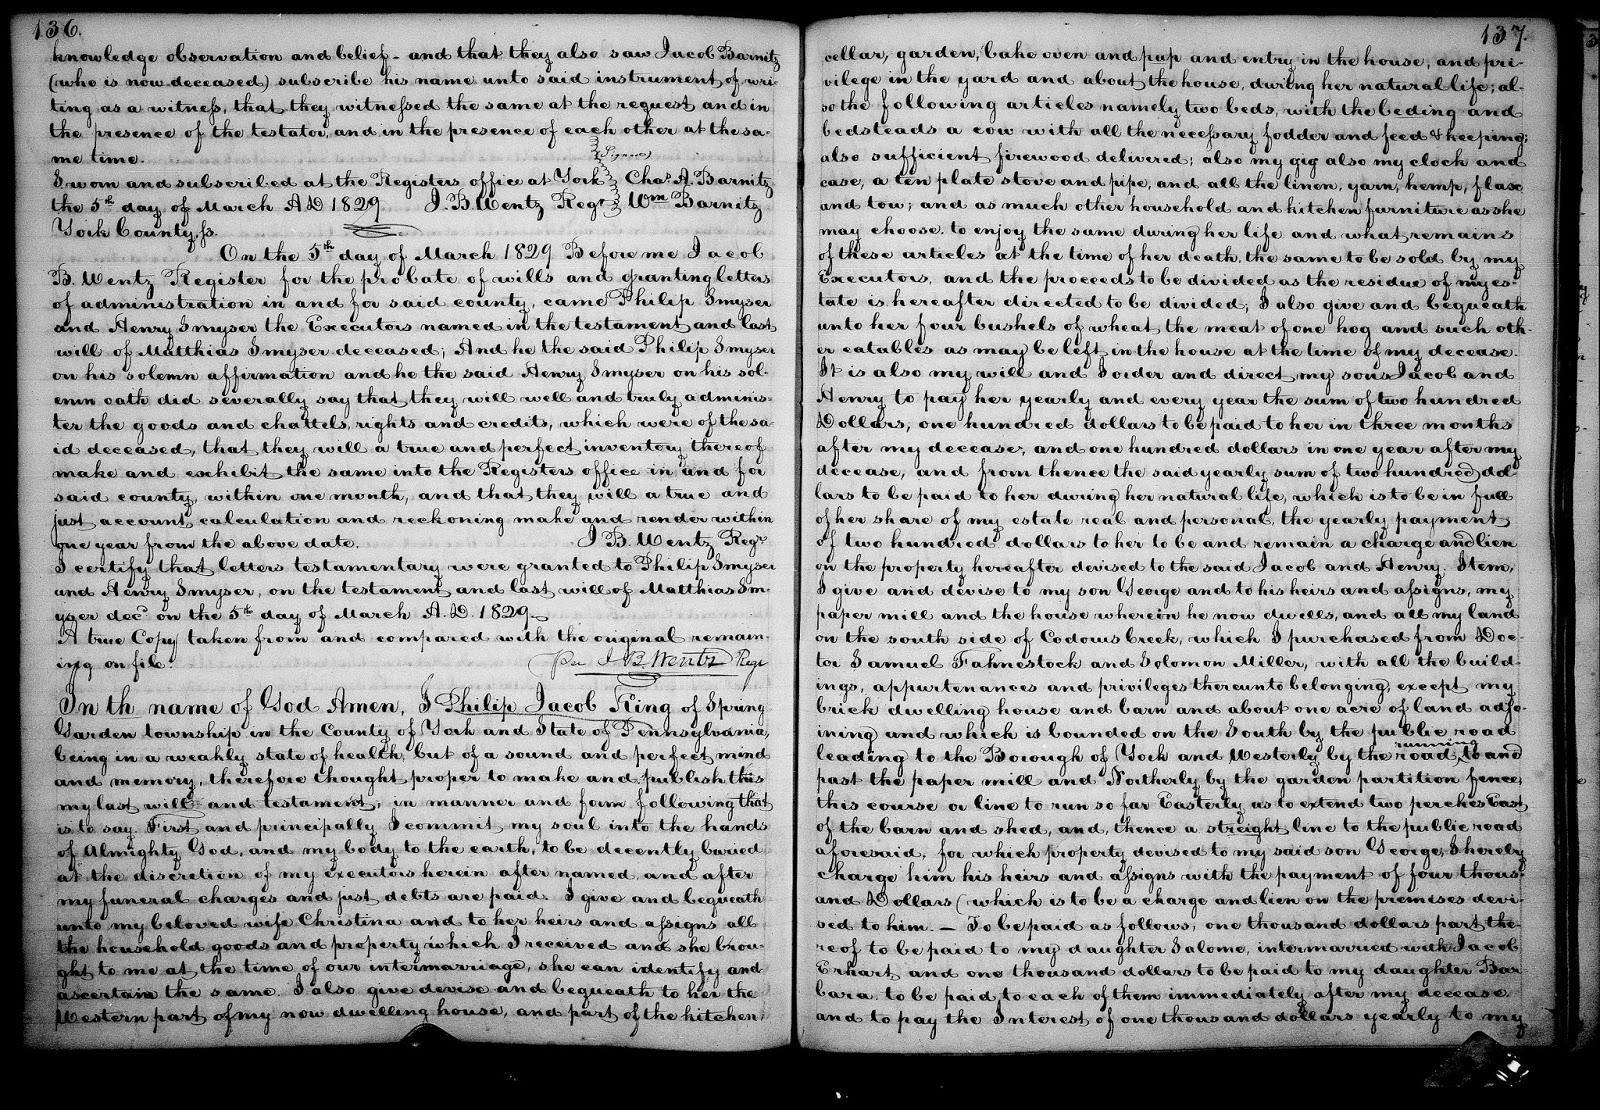 136.
knowledge observation and belief - and that they also saw Jacob Barnitz
(who is now deceased) subscribe his name unto said instrument of wri-
ting as a witness, that they witnessed the same at the request and in
the presence of the testator, and in the presence of each other at the sa-
me time.
(Signed)
Sworn and subscribed at the Registers office at York Chas. A. Barnitz
the 5th day of March A.D 1829 J. B. Wentz Regr Wm Barnitz
York County, ss.
On the 5th day of March 1829 Before me Jacob
B. Wentz Register for the probate of wills and granting letters
of administration in and for said county, came Philip Smyser
and Henry Smyser the Executors named in the testament and last
will of Matthias Smyser deceased; And he the said Philip Smyser
on his solemn affirmation and he the said Henry Smyser on his sol-
emn oath did severally say that they will well and truly adminis-
ter the goods and chattels, rights and credits, which were of the sa-
id deceased, that they will a true and perfect inventory thereof
make and exhibit the same into the Registers office in and for
said county, within one month, and that they will a true and
just account, calculation and reckoning make and render within
one year from the above date. J B. Wentz Regr.
I certify that letters testamentary were granted to Philip Smyser
and Henry Smyser, on the testament and last will of Matthias Sm-
yser decd on the 5th day of March A.D. 1829.
A true Copy taken from and compared with the original remain-
ing on file.
Per J B Wentz Regr
In th name of God Amen, I Philip Jacob King of Spring
Garden township in the County of York and State of Pennsylvania,
being in a weakly state of health, but of a sound and perfect mind
and memory, therefore thought proper to make and publish this
my last will and testament, in manner and form following that
is to say. First and principally I commit my soul into the hands
of Almighty God, and my body to the earth, to be decently buried
at the discretion of my executors herein after named and after
my funeral charges and just debts are paid. I give and bequeath
unto my beloved wife Christina and to her heirs and assigns all
the household goods and property which I received and she brou-
ght to me at the time of our intermarriage, she can identify and
ascertain the same. I also give devise and bequeath to her the
Western part of my now dwelling house, and part of the kitchen,
137.
cellar, garden, bake oven and pap and entry in the house, and pri-
vilege in the yard and about the house, during her natural life; al-
so the following articles namely two beds, with the beding and
bedsteads a cow with all the necessary fodder and feed & keeping;
also sufficient firewood delivered; also my gig also my clock and
case, a ten plate stove and pipe, and all the linen, yarn, hemp, flax
and tow; and as much other household and kitchen furniture as she
may choose. to enjoy the same during her life and what remains
of these articles at the time of her death, the same to be sold by my
Executors, and the proceeds to be divided as the residue of my es-
tate is hereafter directed to be divided; I also give and bequeath
unto her four bushels of wheat the meat of one hog and such oth-
er eatables as may be left in the house at the time of my decease.
It is also my will and I order and direct my sons Jacob and
Henry to pay her yearly and every year the sum of two hundred
Dollars, one hundred dollars to be paid to her in three months
after my decease, and one hundred dollars in one year after my
decease, and from thence the said yearly sum of two hundred dol-
lars to be paid to her during her natural life, which is to be in full
of her share of my estate real and personal, the yearly payment
of two hundred dollars to her to be and remain a charge and lien
on the property hereafter devised to the said Jacob and Henry. Item,
I give and devise to my son George and to his heirs and assigns, my
paper mill and the house wherein he now dwells, and all my land
on the south side of Codorus creek, which I purchased from Doc-
tor Samuel Fahnestock and Solomon Miller, with all the build-
ings, appurtenances and privileges thereunto belonging, except my
brick dwelling house and barn and about one acre of land adjo-
ining and which is bounded on the South by the public road
leading to the Borough of York and Westerly by the road running to and
past the paper mill and Northerly by the garden partition fence,
this course or line to run so far Easterly as to extend two perches East
of the barn and shed, and, thence a streight line to the public road
aforesaid, for which property devised to my said son George, I hereby
charge him his heirs and assigns with the payment of four thous-
and Dollars (which is to be a charge and lien on the premises devi-
sed to him. - To be paid as follows, one thousand dollars part the-
reof to be paid to my daughter Salome, intermarried with Jacob
Erhart and one thousand dollars to be paid to my daughter Bar
bara. to be paid to each of them immediately after my decease
and to pay the Interest of one thousand dollars yearly to my